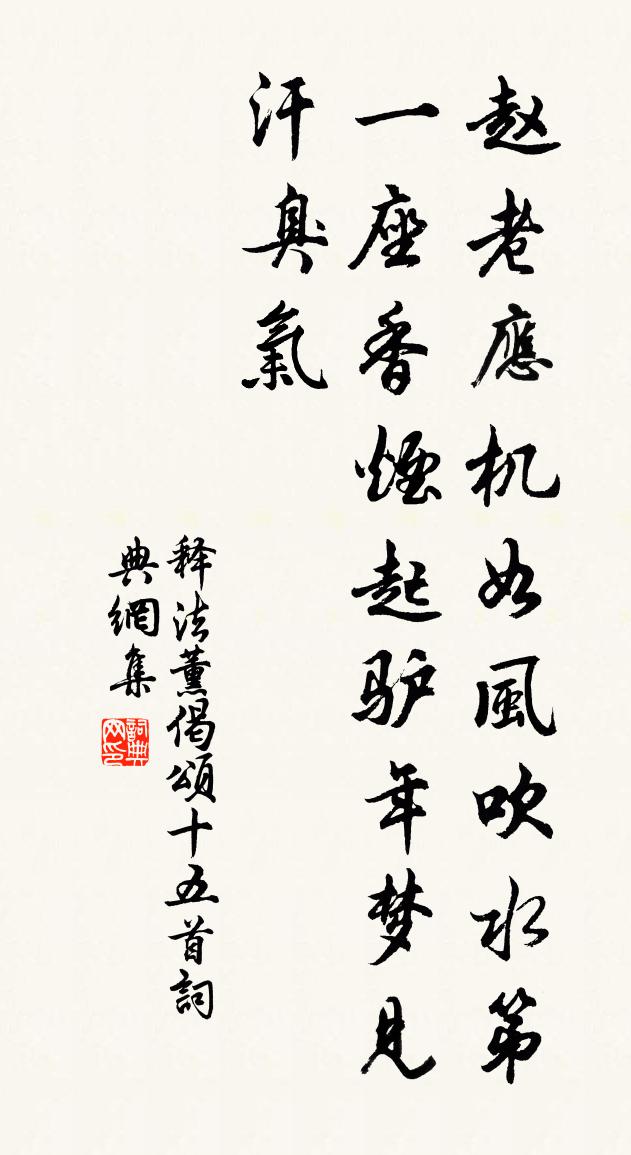 赵老應机如風吹水第
一座香煙起驴年梦見
汗臭氣
释法薰偈頌十五首詞
典網集
詞典网印